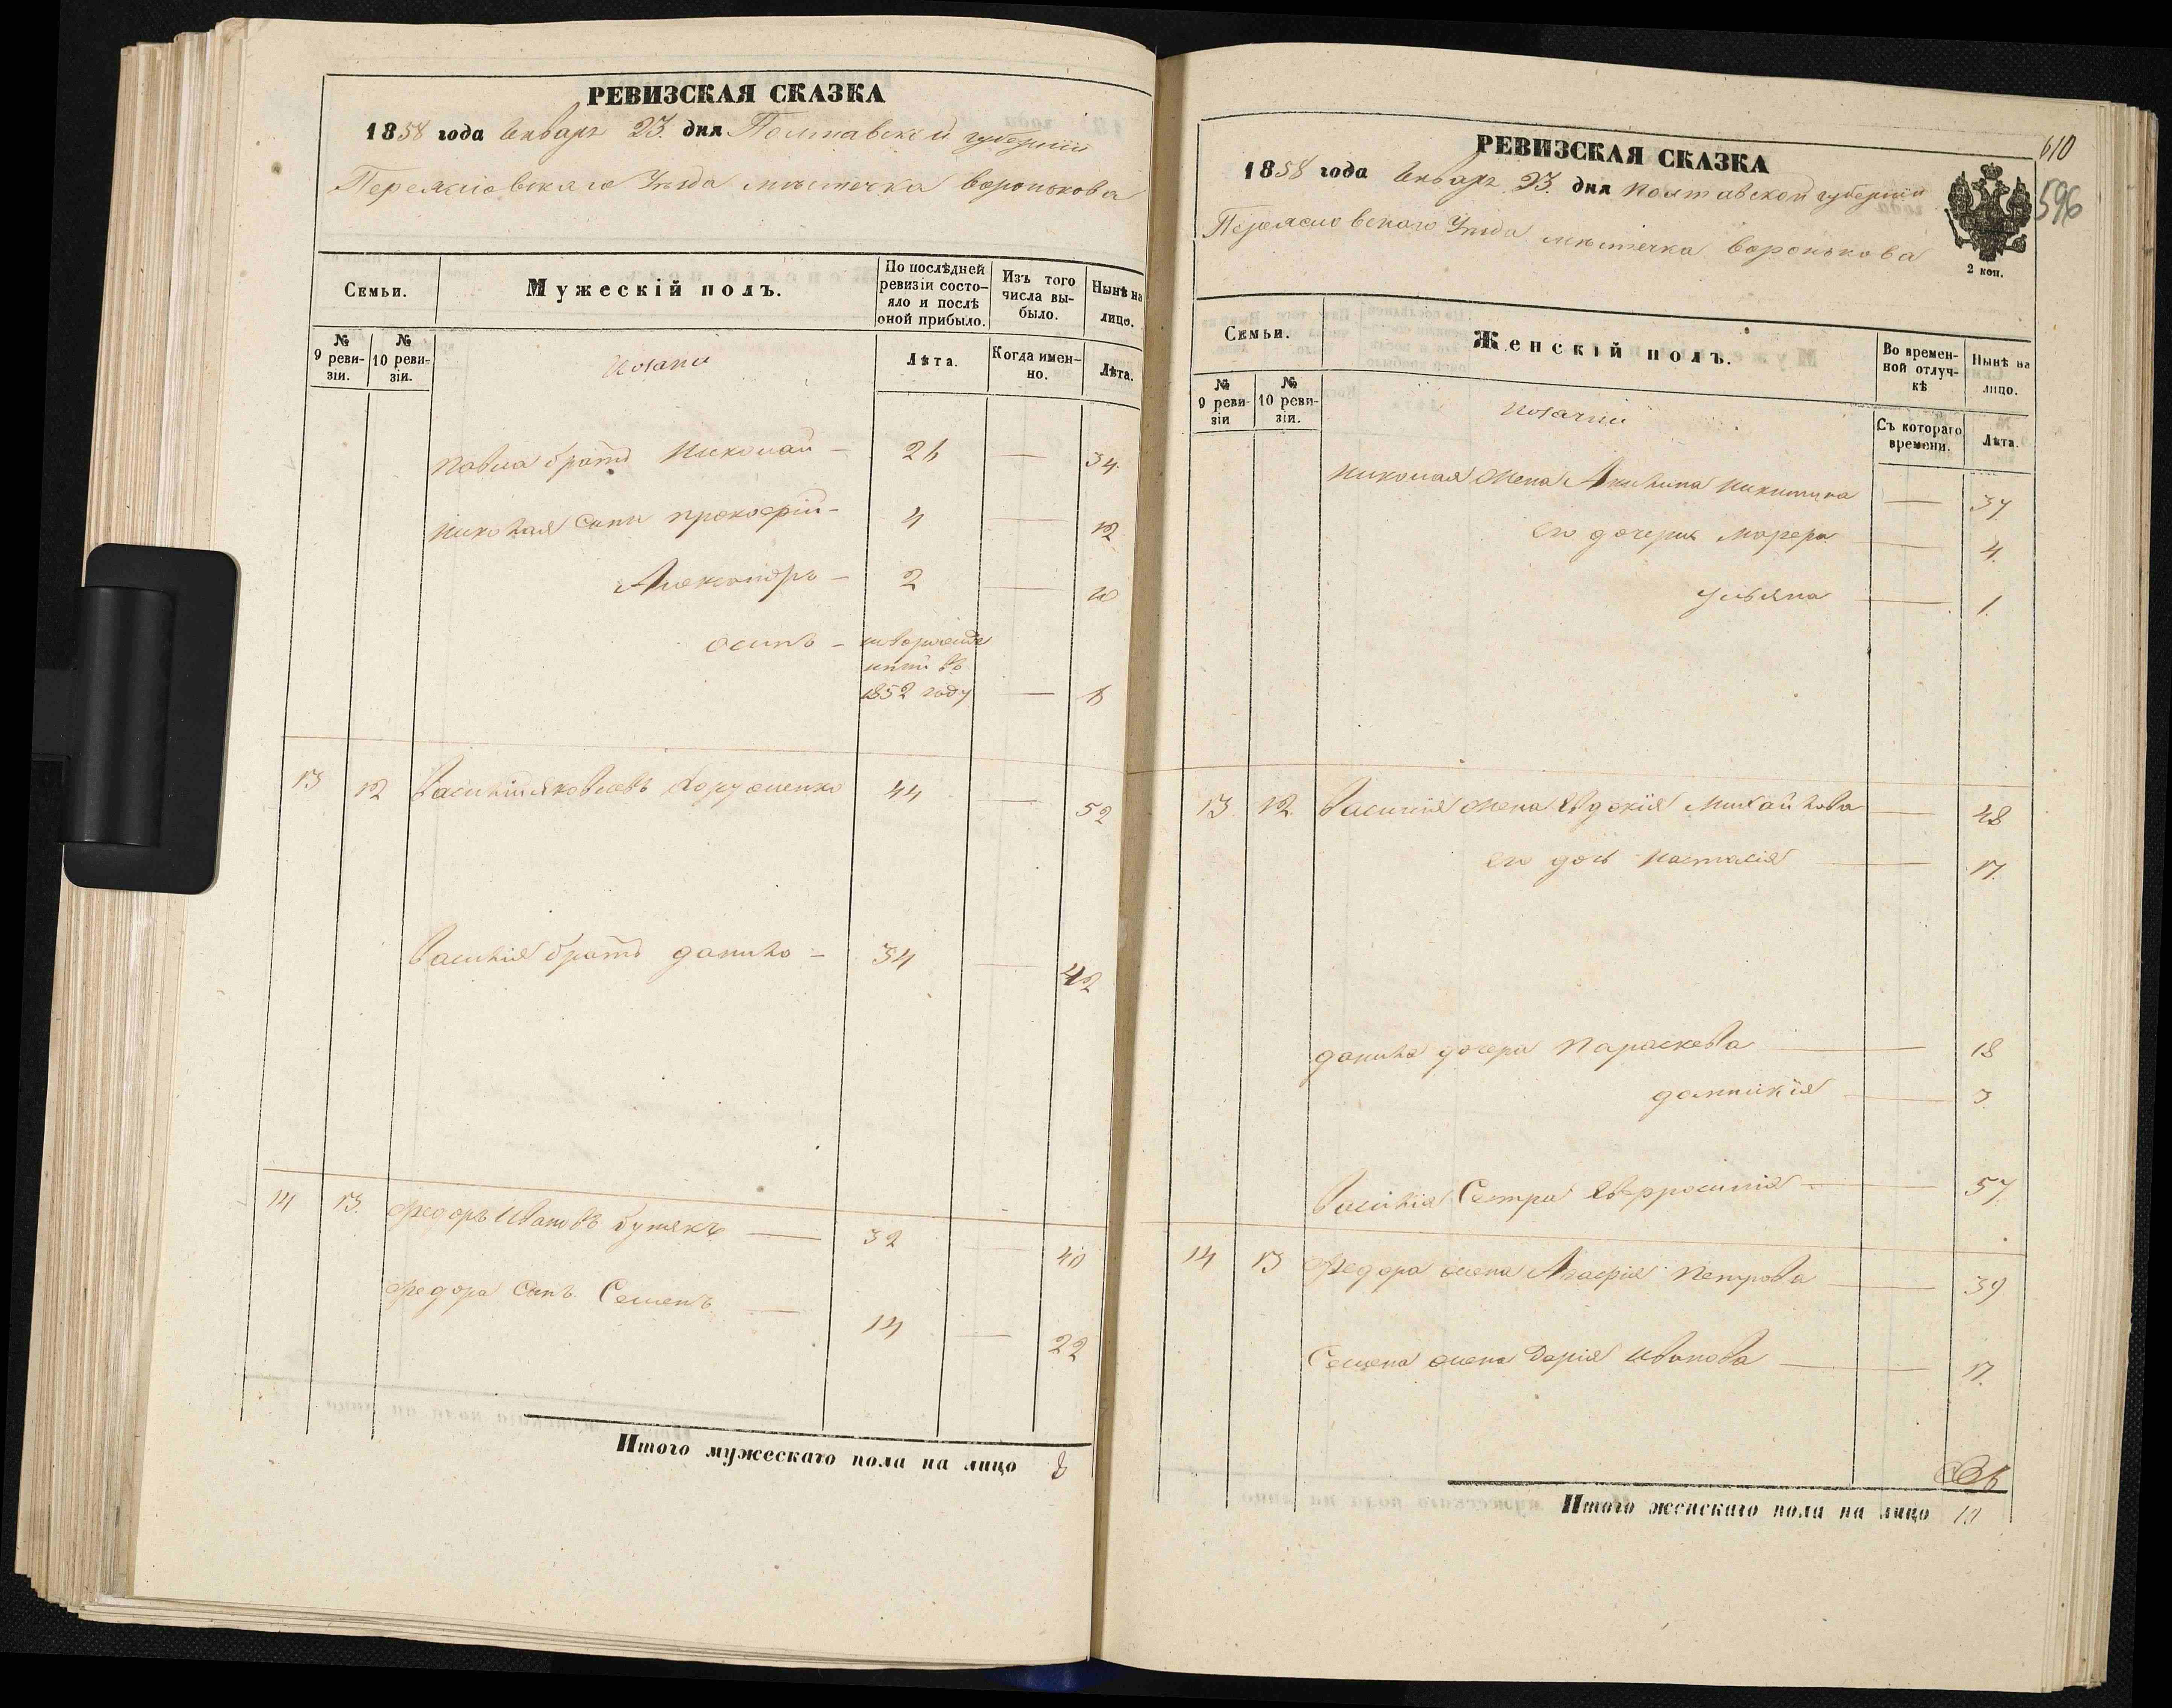 РЕВИЗСКАЯ СКАЗКА
1858 года Января 23. дня Полтавской губернии
Переяславскаго Уезда местечка Воронькова
Семьи.
Мужескій полъ.
По послѣдней ревизіи состо-
яло и послѣ
оной прибыло.
Изъ того
числа вы-
было.
Нынѣ на
лицо.
№
9 реви-
зіи.
№
10 реви-
зіи.
Лѣта.
Когда имен-
но.
Лѣта.
Павла братъ Николай — 26 — 34.
Николая сынъ Прокофій — 4 — 12
Александръ — 2 — 10
Осипъ —
1852 году — 6
13 12 Василій Яковлевъ 44 — 52
Василія братъ Данило — 34 — 42
14 13. Федоръ Ивановъ Бутякъ — 32 — 40
Федора Сынъ Семенъ — 14 — 22
Итого мужескаго пола на лицо 8
РЕВИЗСКАЯ СКАЗКА
610
596
1858 года Января 23. дня Полтавской губерніи
Переяславскаго Уезда местечка Воронькова
2 коп.
Семьи.
Женскій полъ.
Во времен-
ной отлуч-
кѣ
Нынѣ на
лицо.
№
9 реви-
зіи
№
10 реви-
зіи.
Съ котораго
времени.
Лѣта.
Николая жена Акилина Никитина — 37
его дочери — 4.
Ульяна — 1.
13. 12. Василія жена Евдокія Михайлова — 48
его дочь Наталія — 17.
Данила дочери Параскева — 18
— 3
Василія Сестра Евфросинія — 57.
14 13 Федора жена Агафія Петрова — 39
Семена жена Дарія Иванова — 17.
Итого женскаго пола на лицо 10